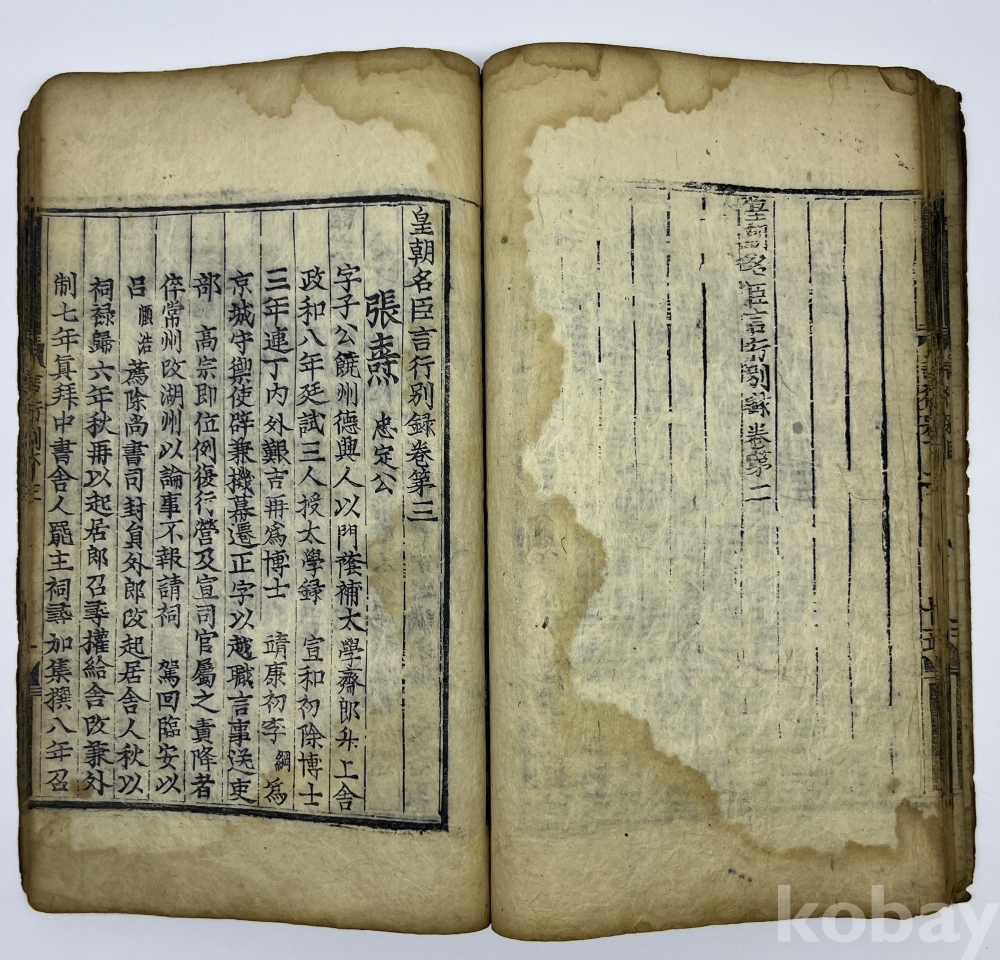 皇朝名臣言行別錄卷第二
皇朝名臣言行別録卷第三
張燾 忠定公
字子公饒州德興人以門蔭補太學齋郎升上舍
政和八年廷試三人授太學録 宣和初除博士
三年連丁内外艱吉再爲博士 靖康初李綱爲
京城守禦使辟兼機幕遷正字以越職言事送吏
部 高宗即位例復行營及宣司官屬之責降者
倅常州改湖州以論事不報請祠 駕回臨安以
呂頤浩薦除尚書司封負外郎改起居舍人秋以
祠禄歸六年秋再以起居郎召尋權給舍改兼外
制七年眞拜中書舍人罷主祠尋加集撰八年召
kobay